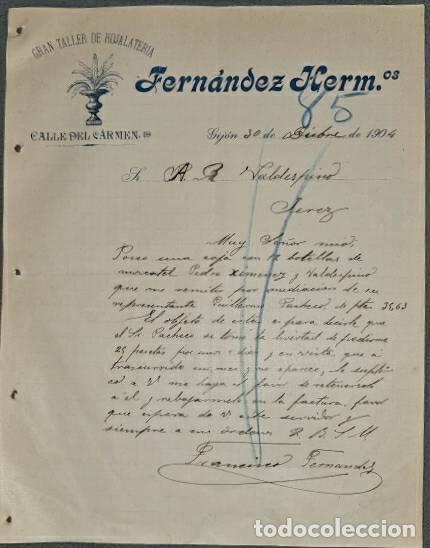 GRAN TALLER DE HOJALATERIA
Fernández Herm.os
85
CALLE DEL CARMEN, 18
Gijón 30 de Dbre de 1904
Sr. A. R. Valdespino
Jerez
Muy Señor mio.
Poseo una caja con 12 botellas de
moscatel Pedro Ximenez y Valdespino
que me remite por mediacion de su
representante Guillermo Pacheco, de ptas 35,63
El objeto de esta es para decirle, que
el Sr. Pacheco se tomó la livertad de pedirme
25 pesetas por unos dias y en vista, que á
trascurrido un mes y no aparece, le suplico
á V me haga el favor de retencerlo
á el, y rebajarmelo en la factura, favor
que espera de V este servidor y
siempre a sus órdenes Q. B. S. M.
Francisco Fernandez
todocoleccion.net